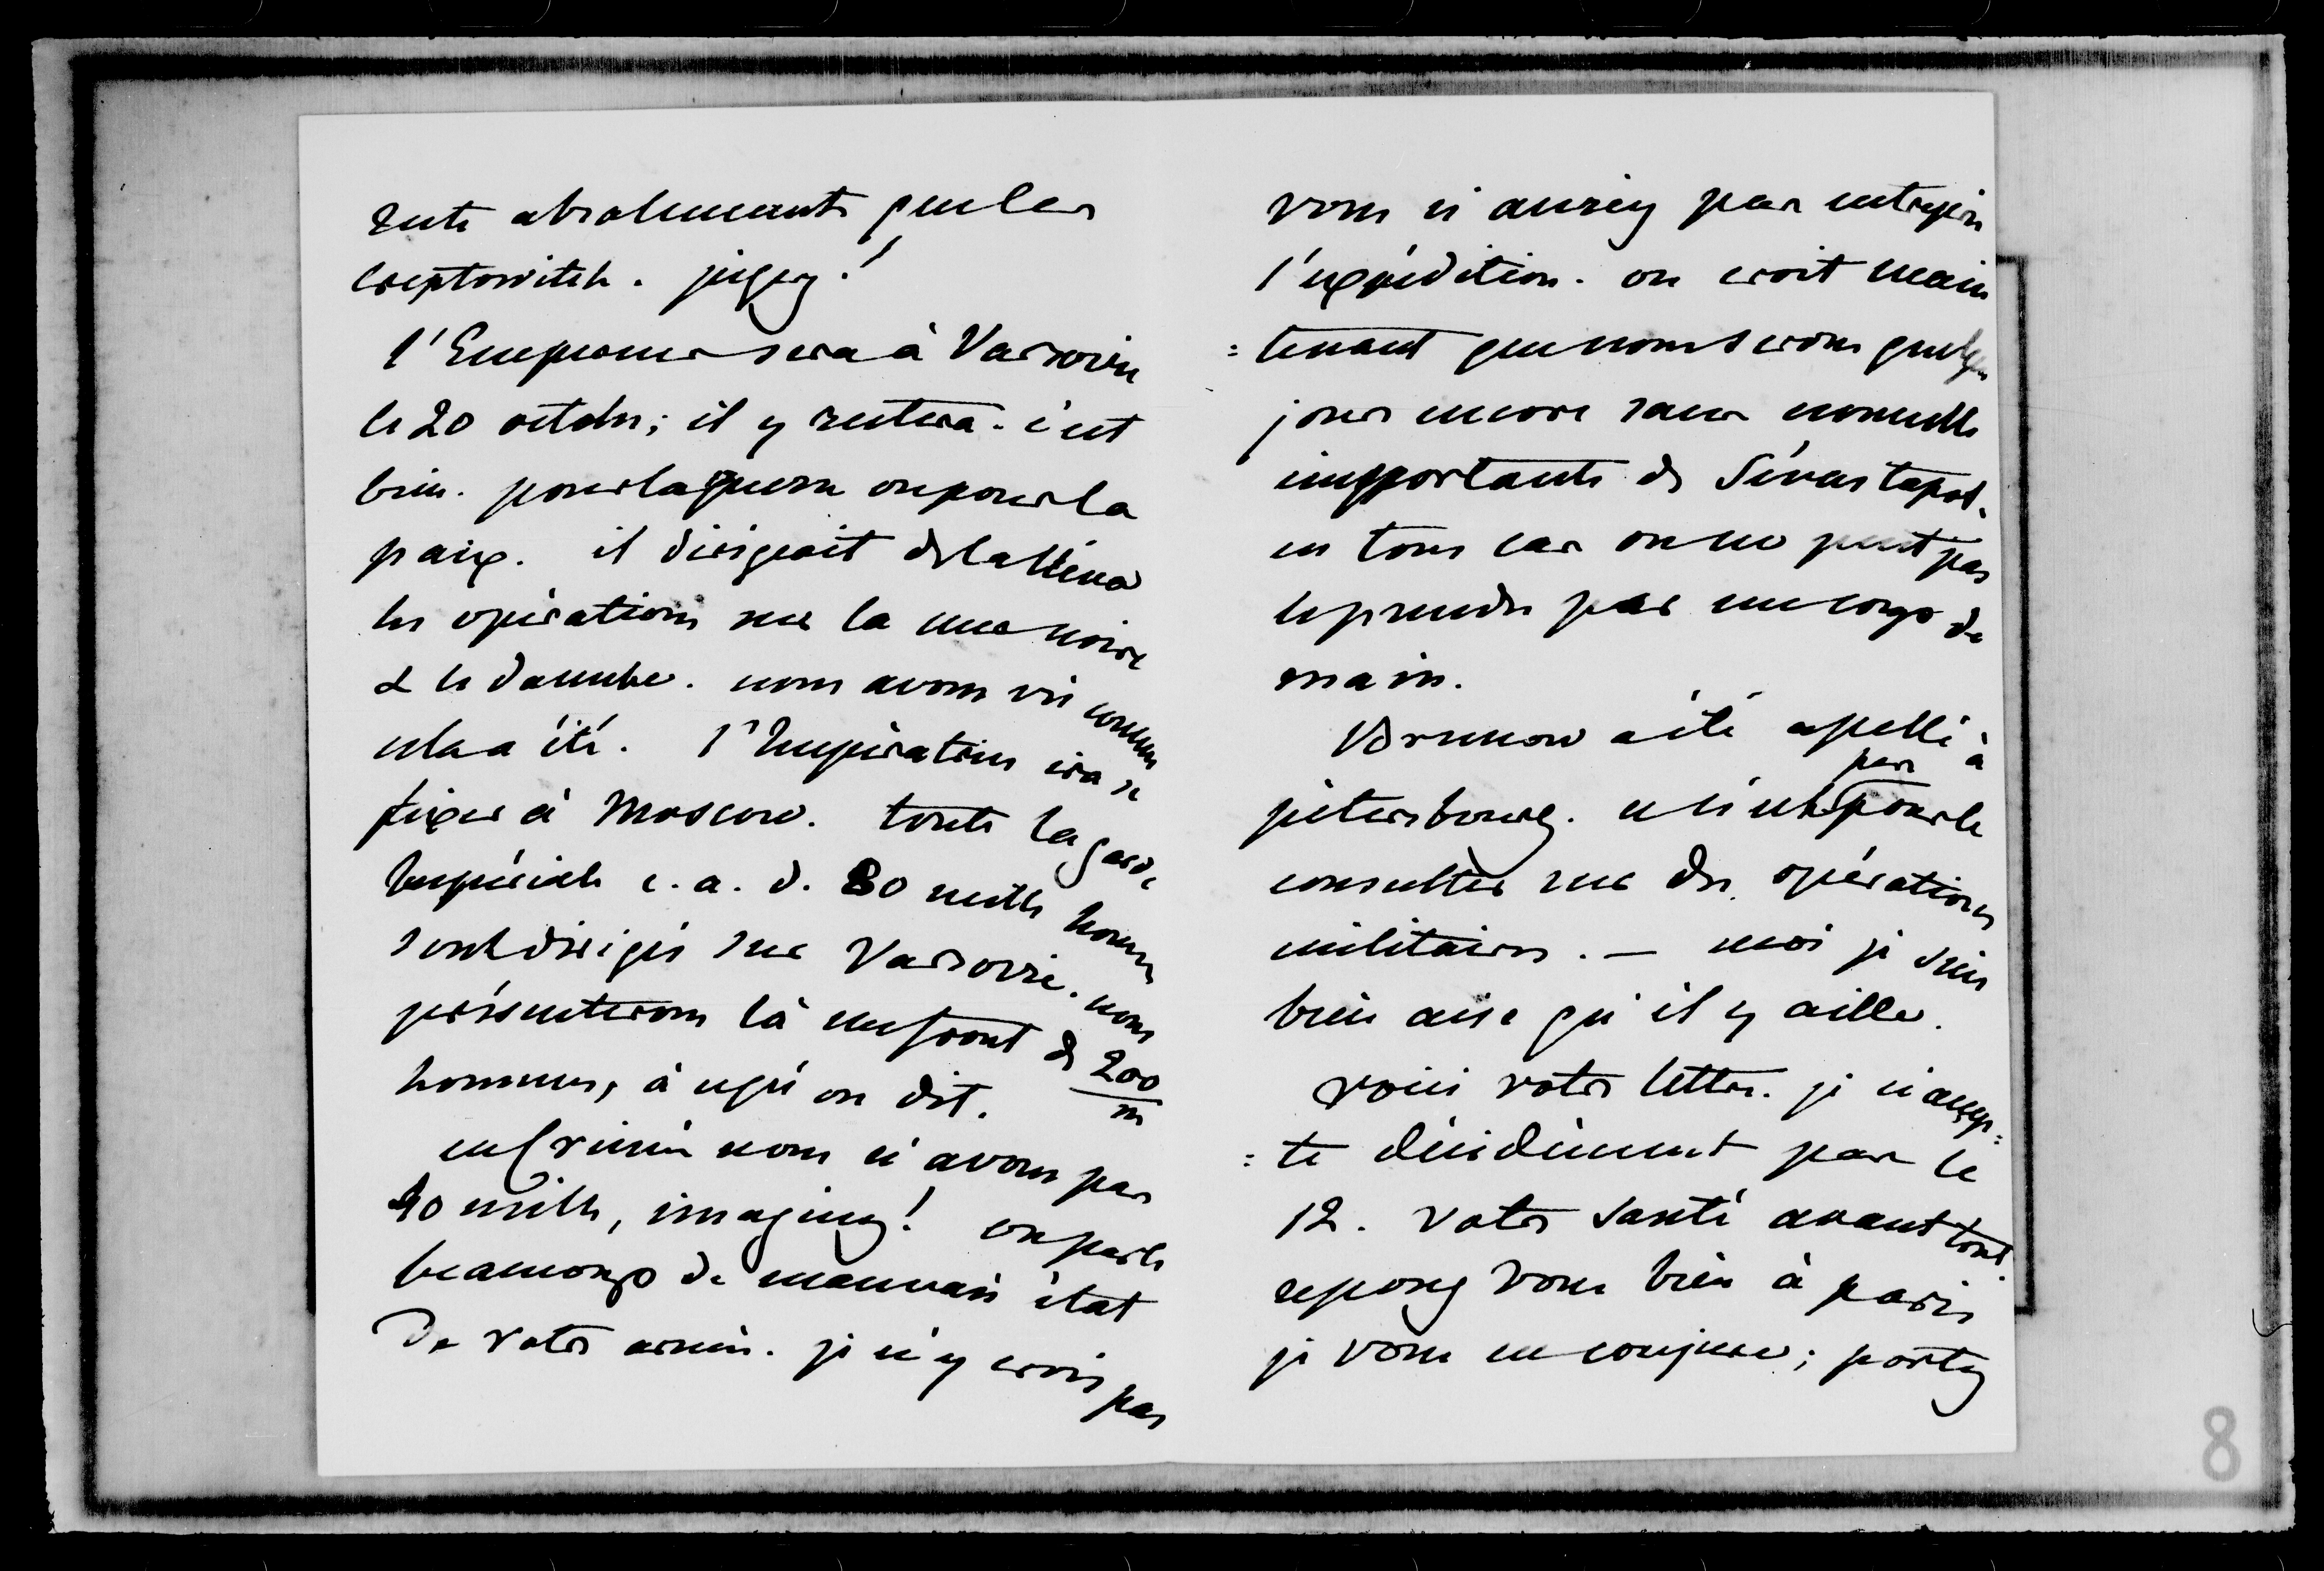 reste absolument que les
Creptowitch. jugez!
l'Empereur sera à Varsovie
le 20 octobre; il y restera. c'est
bien. pour la guerre ou pour la
paix. il dirigeait de la
les opérations sur la mer noire
& le danube. nous avons vu comme
cela a été. l'Impératrice ira se
fixer à Moscow. toute la garde
Impériale c. a. d. 80 mille hommes
sont dirigés sur Varsovie. nous
présenterons là un front de 200/m
hommes, à ce qu'on dit.
en Crimée nous n'avons pas
40 mille, imaginez! on parle
beaucoup de mauvais état
de votre armée. je n'y crois pas
vous n'auriez pas entrepris
l'expédition. on croit main
=tenant que nous serons quelques
jours encore sans nouvelle
importante de Sévastopol.
en tous cas on ne peut pas
le prendre par un coup de
main.
Brunow a été apellé à
pétersbourg. ce n'est pas pour le
consulter sur des opérations
militaires. — moi je suis
bien aise qu'il y aille.
voici votre lettre. je n'accep=
=te décidément pas le
12. votre santé avant tout.
reposez vous bien à paris
je vous en conjure; portez
8